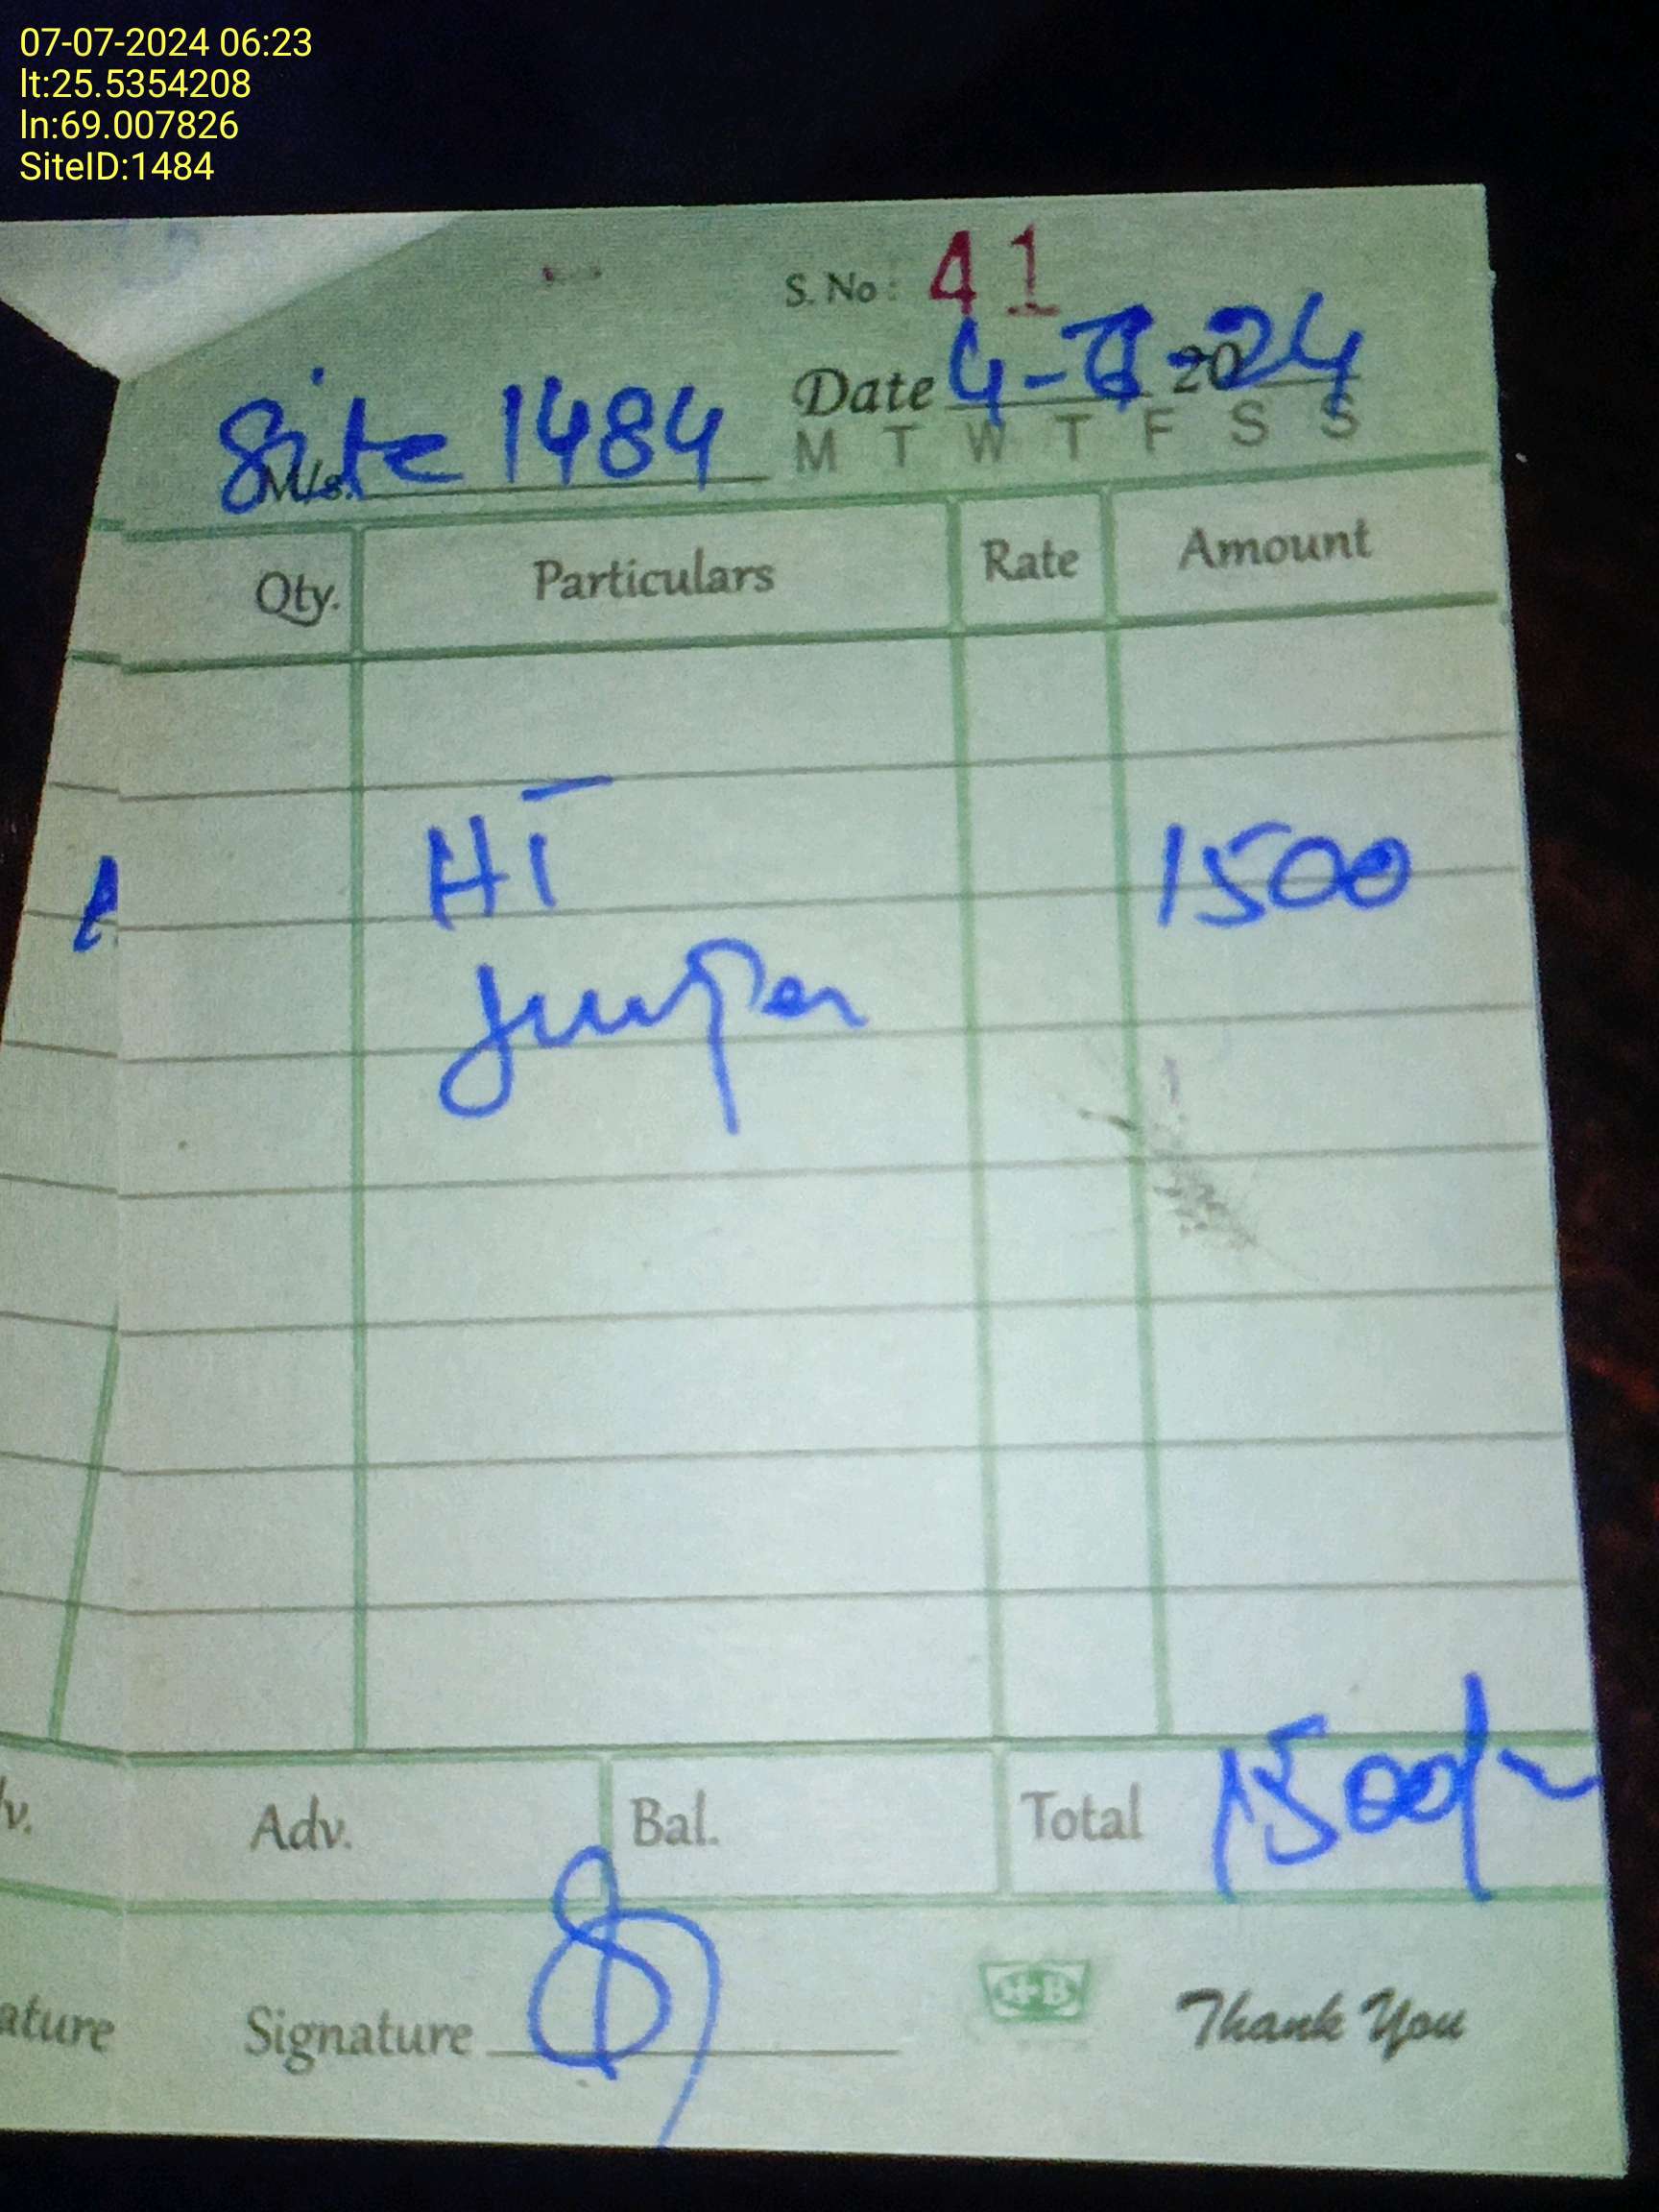 07-07-2024 06:23
lt:25.5354208
ln:69.007826
SiteID:1484
S. No: 41
Date 4- 2024
M/s. Site 1484
M T W T F S S
Qty. Particulars Rate Amount
HT 1500
Jumper
Adv. Bal. Total 1500/-
Signature
H+B
Thank You